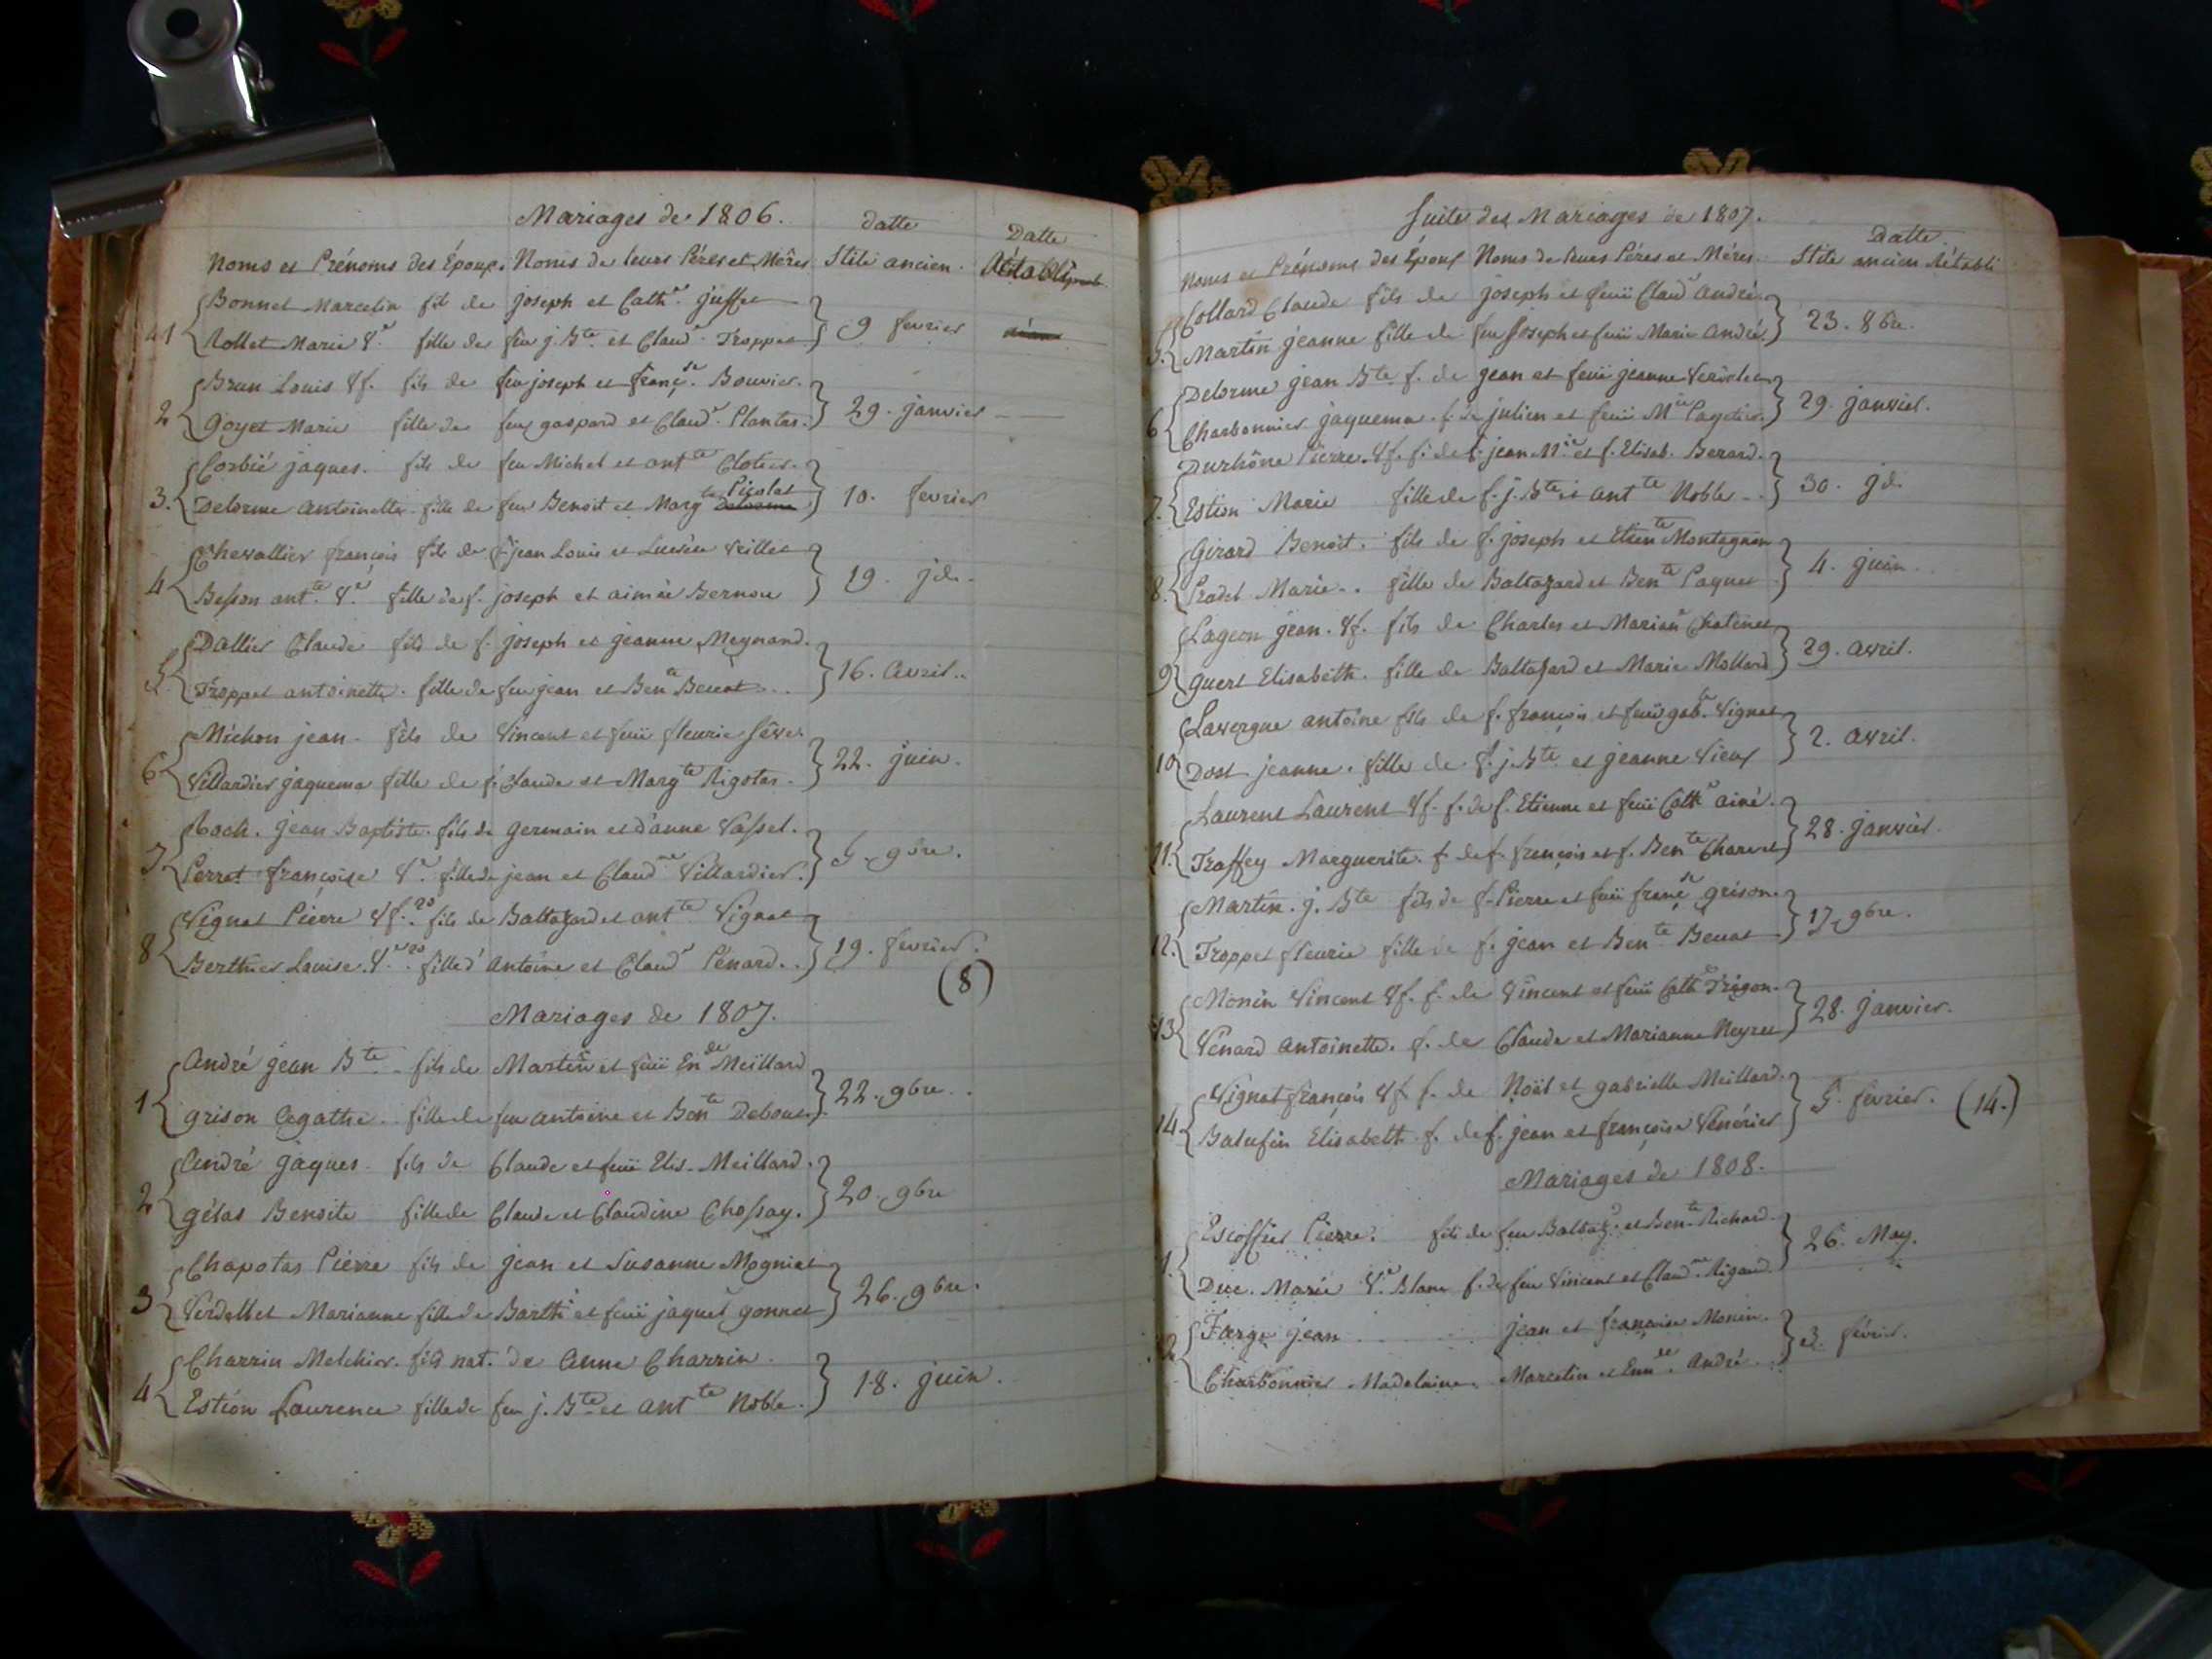 Mariages de 1806.
datte
Datte
Noms et Prénoms des Époux. Noms de leurs Péres et Mêres
Stile ancien.
Rétabli
1 Bonnet Marcelin fils de joseph et Cath.e juffet
Rollet Marie V.e fille de feu j. B.te et Claud.e Troppet
9 fevrier
Brun Louis Vf. fils de feu joseph et franç.se Bouvier.
2 Goyet Marie fille de feu gaspard et Claud.e Plantar.
29. janvier
Corbié jaques. fils de feu Michel et ant.te Clotier.
3. Delorme Antoinette fille de feu Benoit et Marg.te Picolet
10. fevrier
Chevallier françois fils de f. jean Louis et Lucrèce Veillet
4 Besson ant.te V.e fille de f. joseph et aimée Bernou
19. jd.
Dallier Claude fils de f. joseph et jeanne Meynand.
5. Troppet antoinette. fille de feu jean et Ben.te Benat
16. Avril.
Michon jean. fils de Vincent et feuë fleurie Sève.
6 Villardier jaquema fille de f. Claude et Marg.te Rigotas.
22. juin.
Roch. Jean Baptiste. fils de germain et d'anne Vassel.
7 Perret françoise V.e fille de jean et Claud.ne Villardier.
5. 9bre.
Vignat Pierre Vf. 20 fils de Baltazard et ant.te Vignat
8 Berthier Louise V.e 20 fille d'Antoine et Claud.e Penard.
19. fevrier.
(8)
Mariages de 1807.
André jean B.te fils de Martin et feuë En.de Meillard
1 Grison Agathe. fille de feu antoine et Ben.te Debout
22. 9bre.
André Jaques. fils de Claude et feuë Elis. Meillard.
2 gélas Benoite fille de Claude et Claudine Chossay.
20. 9bre
Chapotas Piérre fils de jean et Susanne Mogniat
3 Verdellet Marianne fille de Barth.i et feuë jaque.e gonnet
26. 9bre.
Charrin Melchior. fils nat. de Anne Charrin.
4 Estion Laurence fille de feu j. B.te et ant.te Noble.
18. juin.
Suite des Mariages de 1807.
Datte
Noms et Prénoms des Époux Noms de leurs Péres et Méres.
Stile ancien Rétabli
Collard Claude fils de joseph et feuë Claud.e André.
5. Martin jeanne fille de feu Joseph et feuë Marie André
23. 8bre.
Delorme jean B.te f. de jean et feuë jeanne
6 Charbonnier jaquema. f. de julien et feuë M.ie
29. janviel.
Durhône Pierre. Vf. f. de f. jean M.ie et f. Elisab. Berard.
7. Estion Marie fille de f. j. B.te et ant.te Noble
30. jd.
Girard Benoit. fils de f. joseph et Etien.te Montagnon
8. Pradel Marie. fille de Baltazard et Ben.te Paquet
4. juin.
Lageon jean. Vf. fils de Charles et Marian.e Chatenet
9 Guert Elisabeth. fille de Baltazard et Marie Mollard
29. avril.
Lavergne antoine fils de f. françois et feuë gab.le Vignat
10 Dost jeanne. fille de f. j. B.te et jeanne Vieux
2. avril.
Laurent Laurent Vf. f. de f. Etienne et feuë Cath.e ainé.
11. Traffey Marguerite. f. de f. françois et f. Ben.te Charvet
28. janviel.
Martin. j. B.te fils de f. Pierre et feuë franç.se grison.
12. Troppet fleurie fille de f. jean et Ben.te Benat
17. 9bre.
Monin Vincent Vf. f. de Vincent et feuë Cath.e Trigon.
13 Vénard Antoinette. f. de Claude et Marianne Neyret
28. janvier.
Vignat françois Vf f. de Noël et gabrielle Meillard.
14 Balufin Elisabeth f. de f. jean et françoise Venérier
5. fevrier. (14.)
Mariages de 1808.
Escoffier Pierre. fils de feu Baltaz.d et Ben.te Richard.
1. Duc. Marie V.e Blanc f. de feu Vincent et Claud.ne Rigaud
26. May.
Farge jean jean et françoise Monin.
2 Charbonnier Madelaine. Marcelin et Enn.de André.
3. févrie.